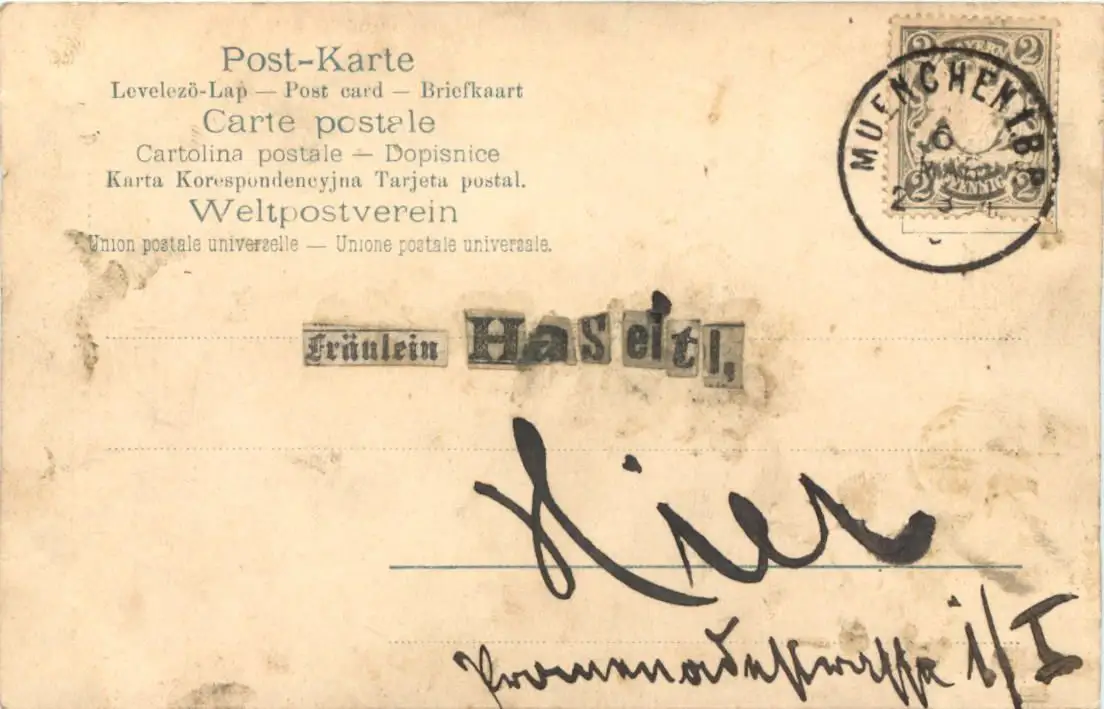 Post-Karte
Levelezö-Lap — Post card — Briefkaart
Carte postale
Cartolina postale — Dopisnice
Karta Korespondencyjna Tarjeta postal.
Weltpostverein
Union postale universelle — Unione postale universale.
2 BAYERN 2
2 PFENNIG 2
MUENCHEN 1. B.P.
6
Fräulein HaSeitl,
Hier
Promenadestrasse 1/I